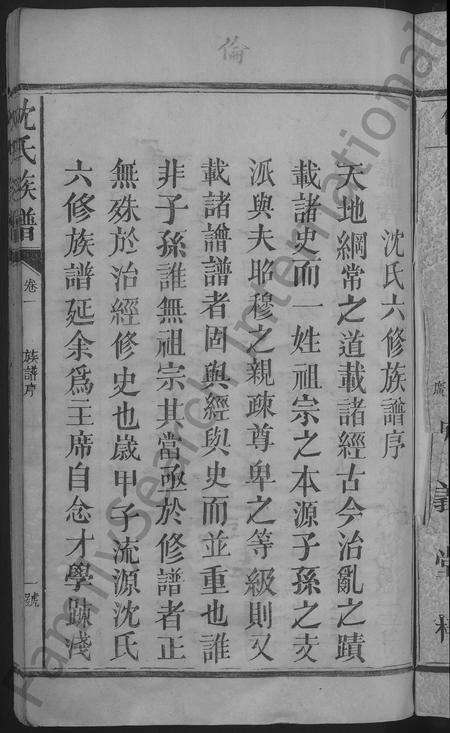 倫
沈氏六修族譜序
天地綱常之道載諸經古今治亂之蹟
載諸史而一姓祖宗之本源子孫之支
派與夫昭穆之親疎尊卑之等級則又
載諸譜譜者固與經與史而並重也誰
非子孫誰無祖宗其當亟於修譜者正
無殊於治經修史也歲甲子流源沈氏
六修族譜延余爲主席自念才學踈淺
沈氏族譜
卷一
族譜序
一號
義堂
FamilySearch International